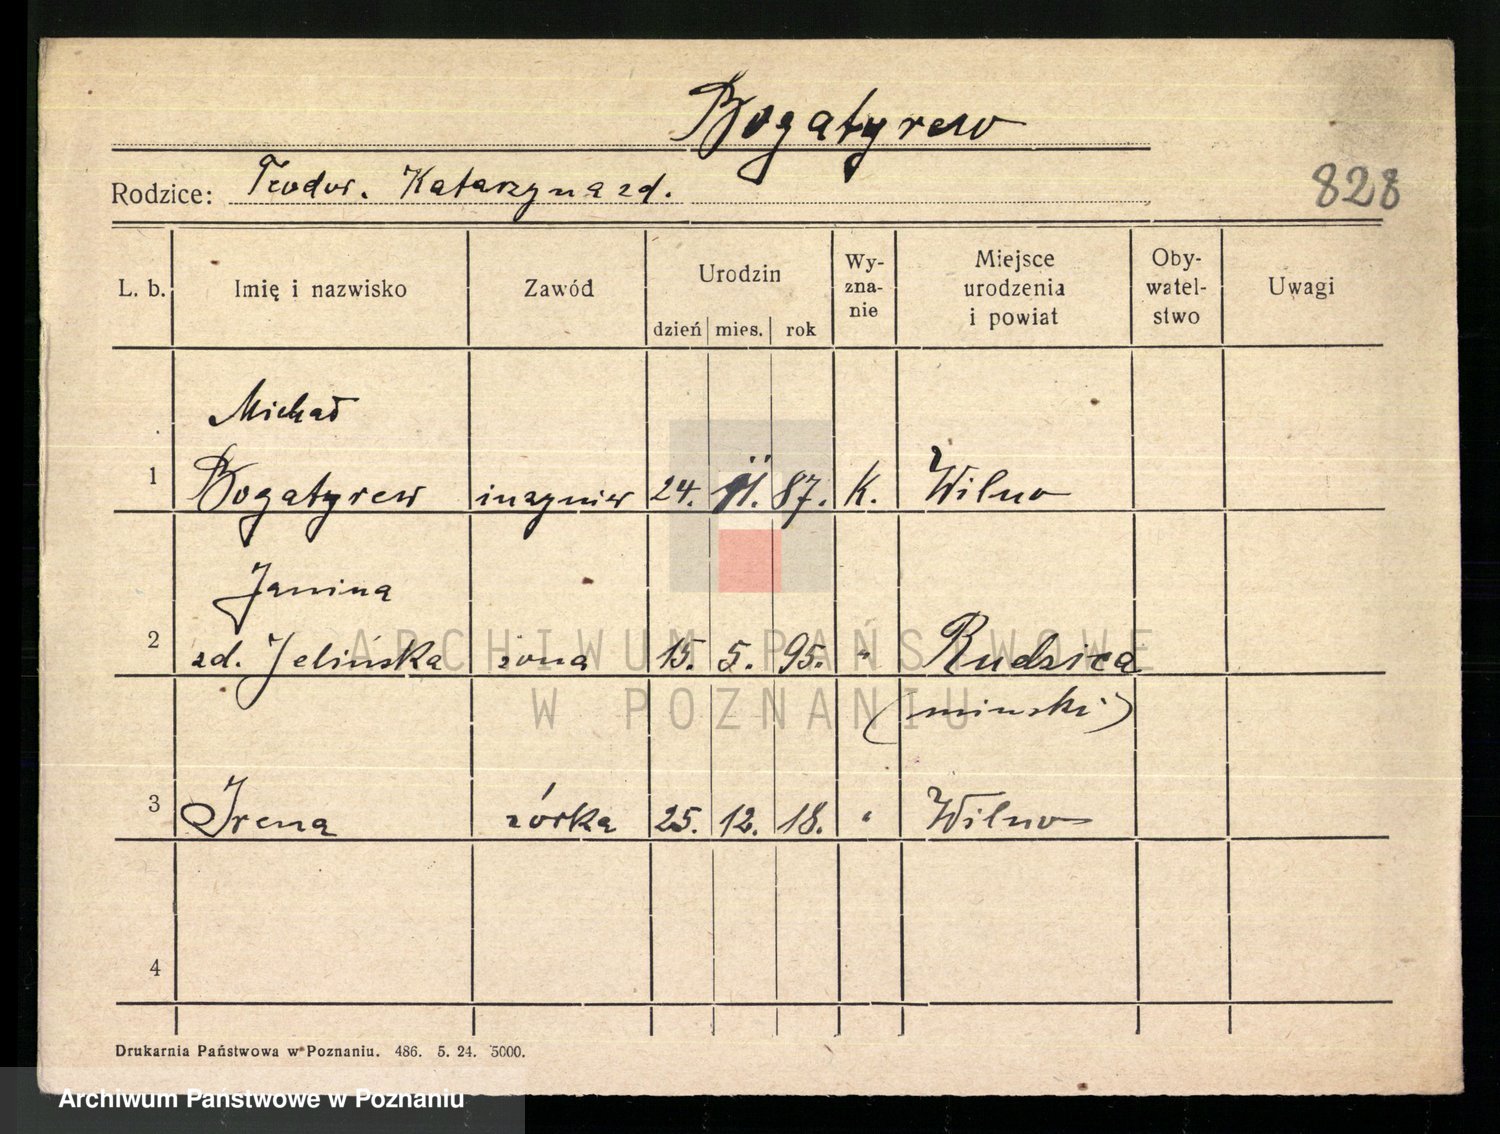 Bogatyrew
Rodzice: Teodor. Katarzyna zd.
828
L. b. Imię i nazwisko Zawód Urodzin dzień mies. rok Wy-zna-nie Miejsce urodzenia i powiat Oby-watel-stwo Uwagi
Michał
1 Bogatyrew inżynier 24. 11. 87. K. Wilno
Janina
2 zd. Jelińska żona 15. 5. 95. " Rudzica
(minski)
3 Irena córka 25. 12. 18. " Wilno
4
Drukarnia Państwowa w Poznaniu. 486. 5. 24. 5000.
ARCHIWUM PAŃSTWOWE
W POZNANIU
Archiwum Państwowe w Poznaniu